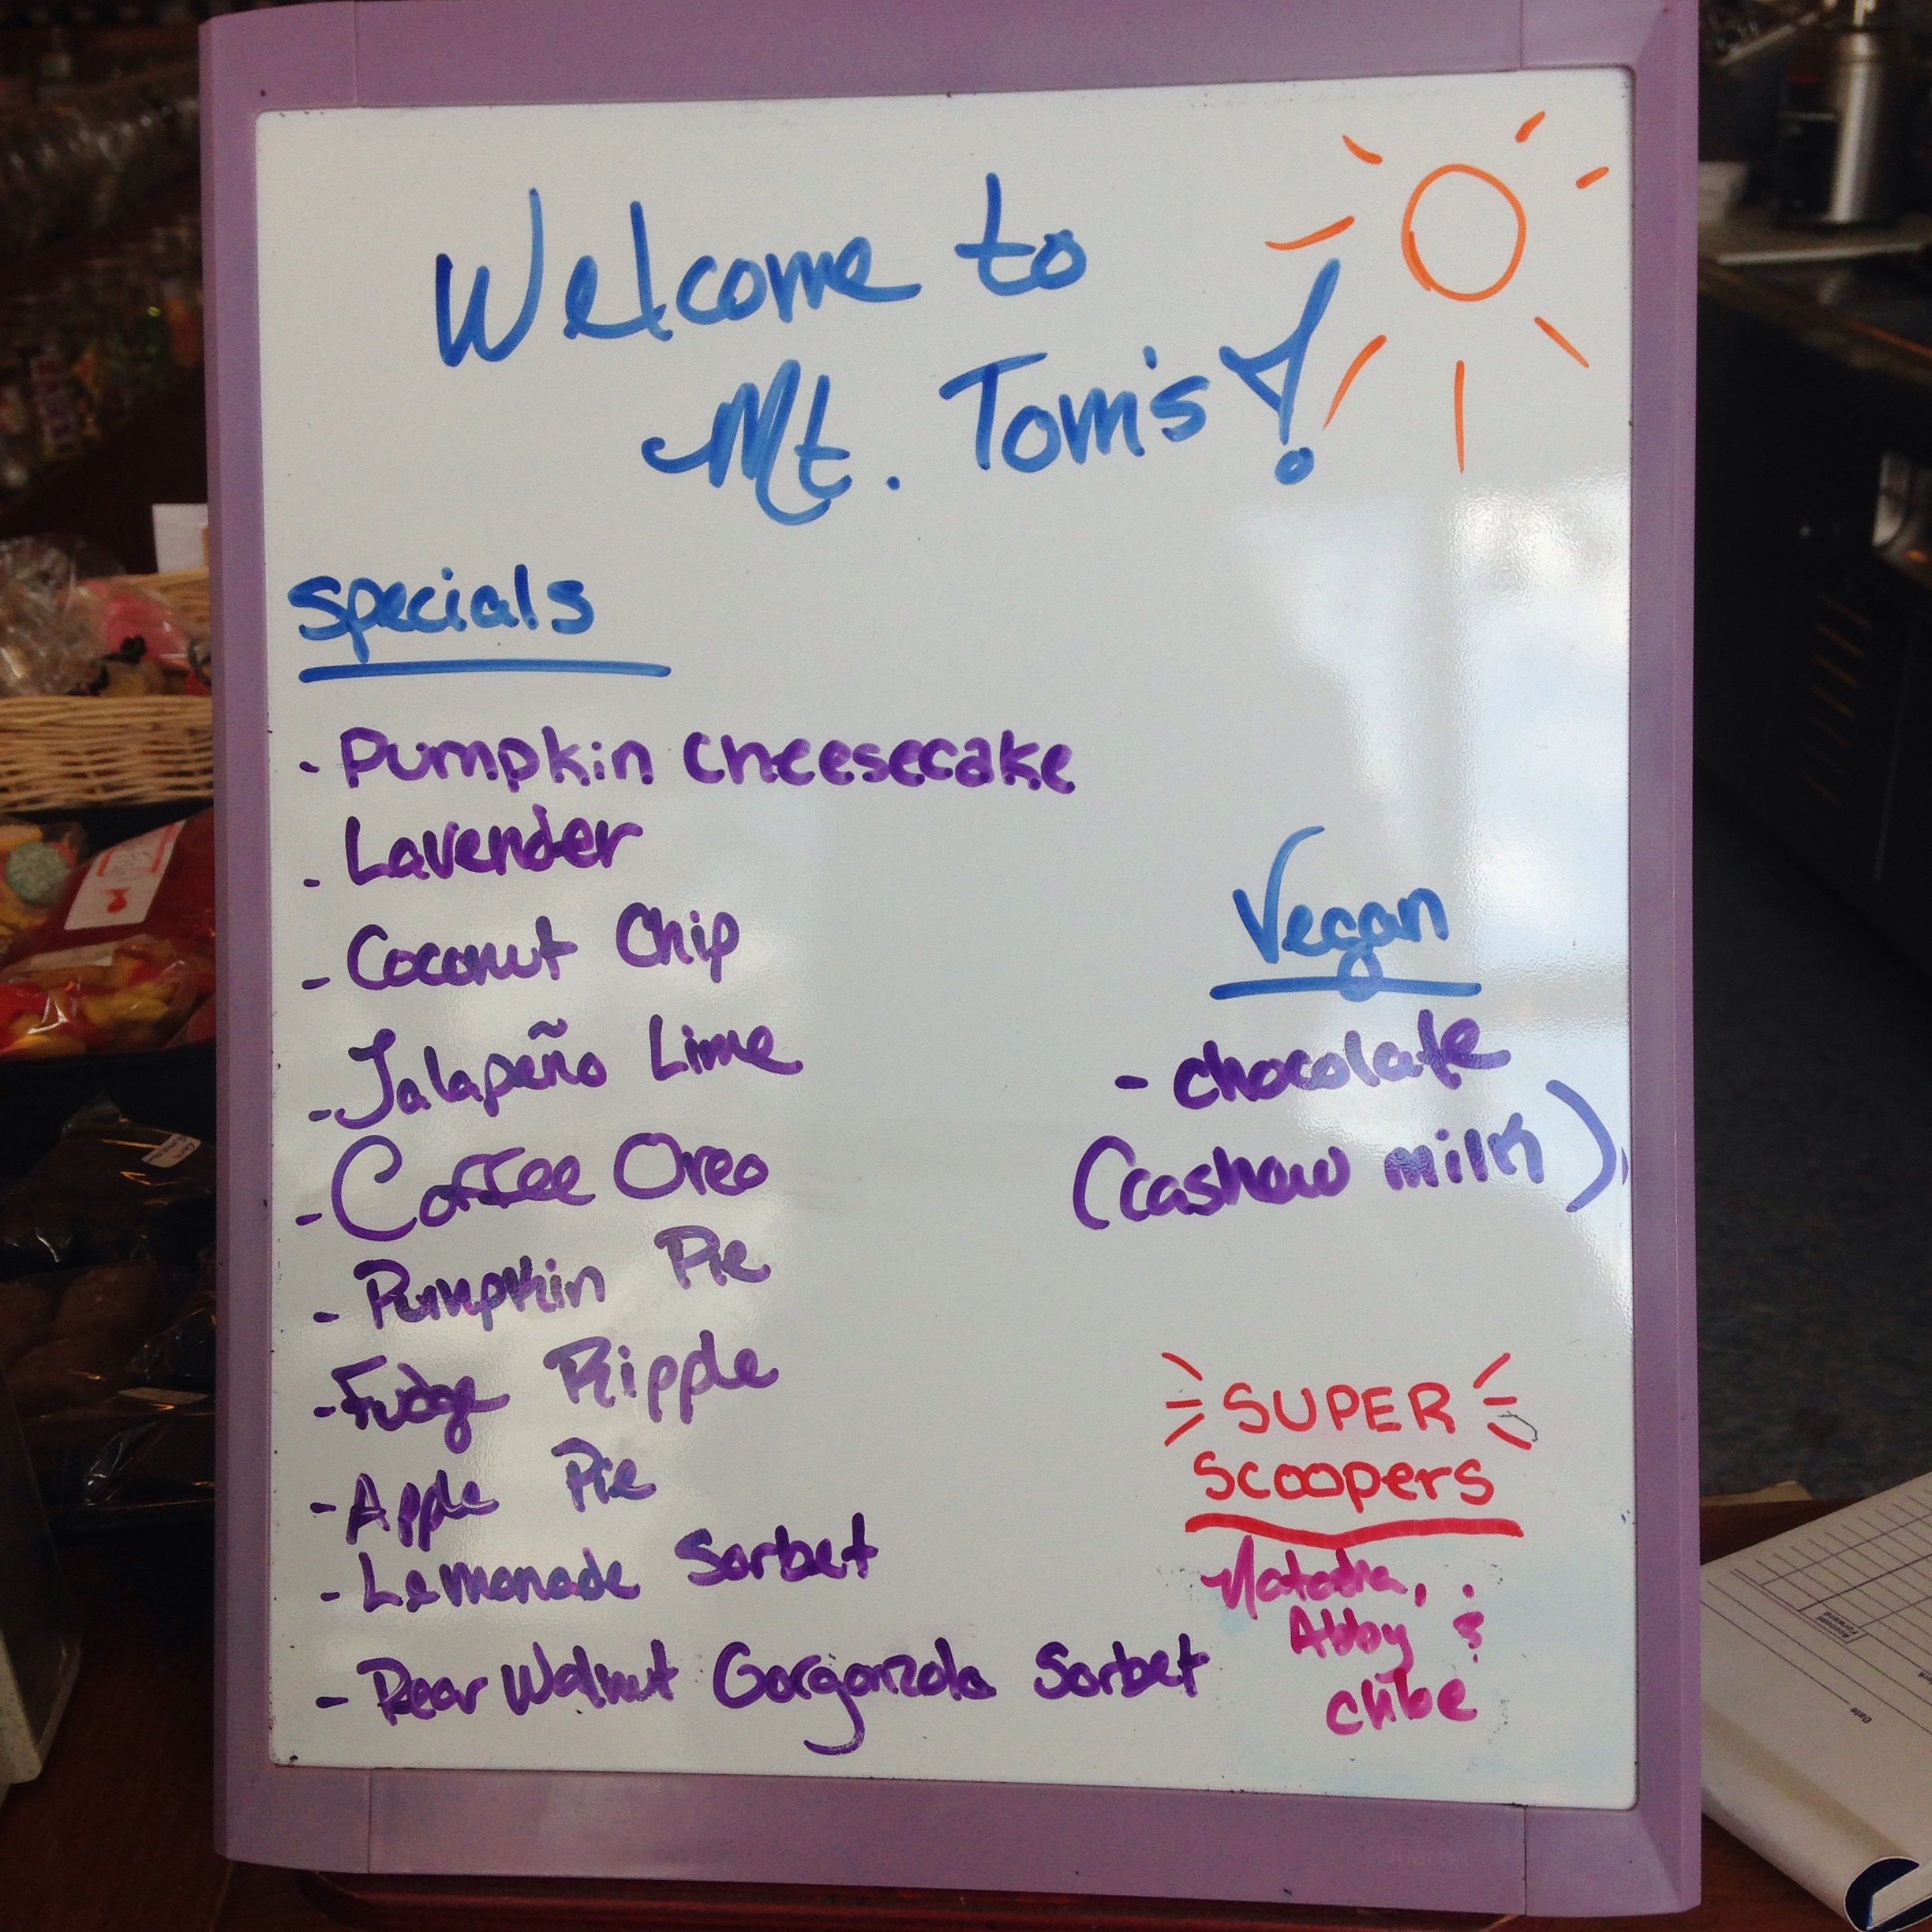 Welcome to
Mt. Tom's!
specials
- Pumpkin Cheesecake
- Lavender
- Coconut Chip
- Jalapeño Lime
- Coffee Oreo
- Pumpkin Pie
- Fudge Ripple
- Apple Pie
- Lemonade Sorbet
- Pear Walnut Gorgonzola Sorbet
Vegan
- chocolate
(cashew milk)
SUPER
Scoopers
Abby &
chloe